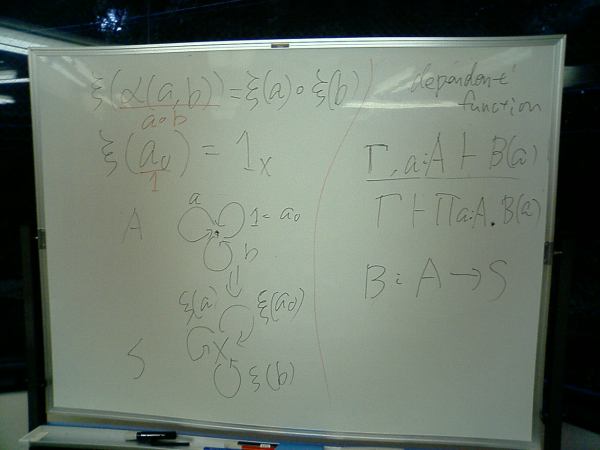 ξ(α(a,b)) = ξ(a)∘ξ(b)
a∘b
ξ(a₀) = 1ₓ
1
A
a
1 = a₀
b
⇓
ξ(a)
ξ(a₀)
X
S
ξ(b)
dependent
function
Γ, a:A ⊢ B(a)
Γ ⊢ Πa:A. B(a)
B : A → S